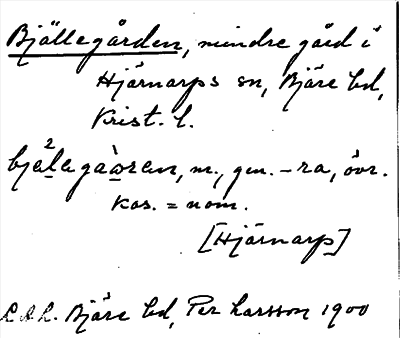 Bjällegården, mindre gård i
Hjärnarps sn, Bjäre hd,
Krist. l.
bjälegàoran, m., gen. -ra, övr.
kas. = nom.
[Hjärnarp]
L.A.L. Bjäre hd, Per Larsson 1900